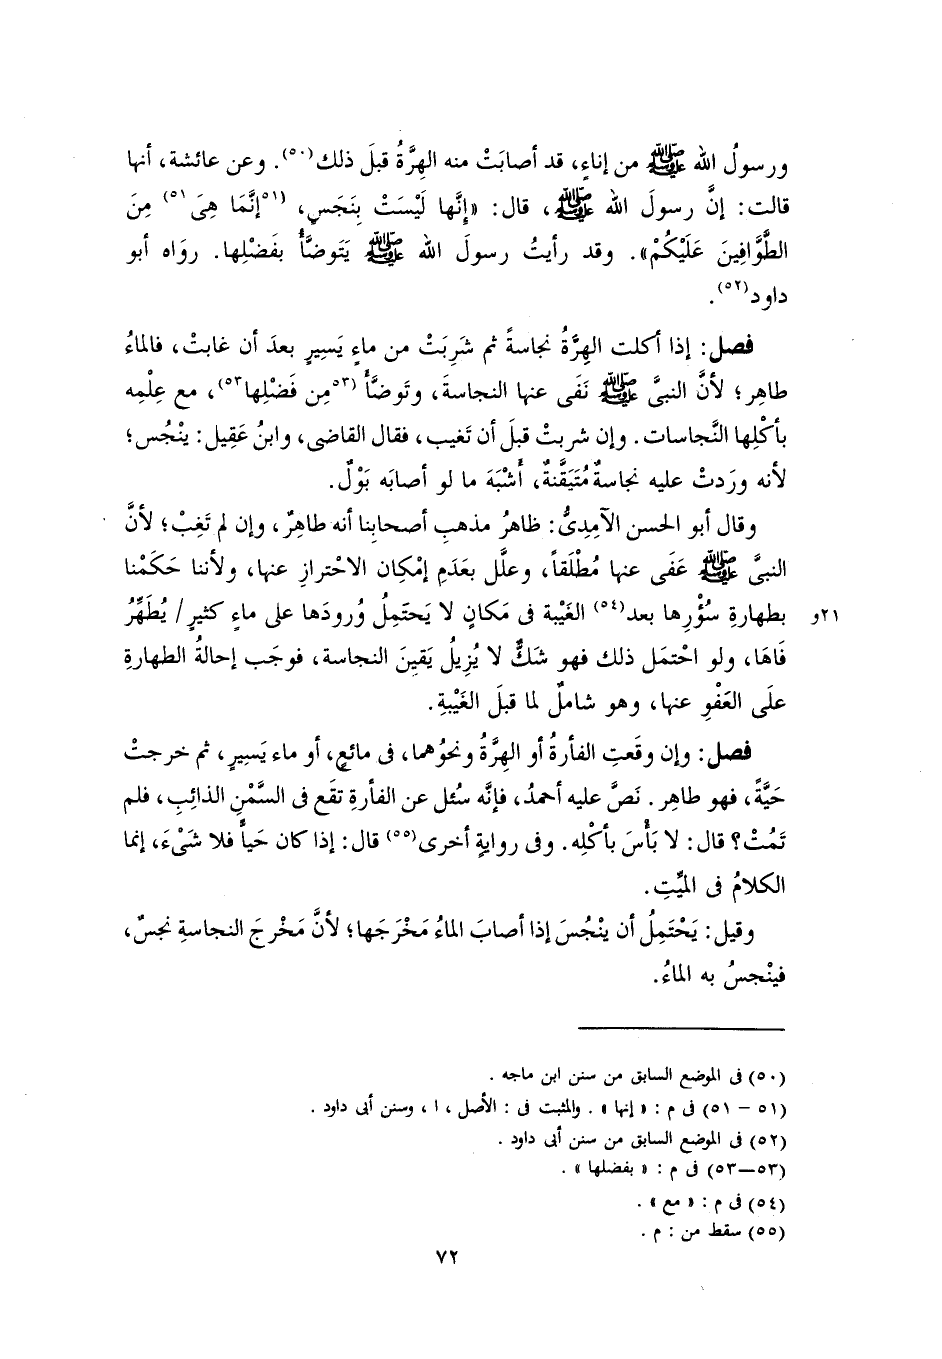 ورسولُ الله ﷺ من إناءٍ، قد أصابَتْ منه الهِرَّةُ قبلَ ذلك(٥٠). وعن عائشة، أنها
قالت: إنَّ رسولَ الله ﷺ، قال: «إِنَّها لَيْسَتْ بِنَجَسٍ، (٥١إنَّمَا هِىَ٥١) مِنَ
الطَّوَّافِينَ عَلَيْكُمْ». وقد رأيتُ رسولَ الله ﷺ يَتَوضَّأُ بفَضْلِها. روَاه أبو
داود(٥٢).
فصل: إذا أكلت الهِرَّةُ نجاسةً ثم شَرِبَتْ من ماءٍ يَسِيرٍ بعدَ أن غابتْ، فالماءُ
طاهِر؛ لأنَّ النبىَّ ﷺ نَفَى عنها النجاسةَ، وتَوضَّأَ (٥٣مِن فَضْلِها٥٣)، مع عِلْمِه
بأكْلِها النَّجاسات. وإن شربتْ قبلَ أن تَغيب، فقال القاضى، وابنُ عَقِيل: ينْجُس؛
لأنه ورَدتْ عليه نجاسةٌ مُتَيَقَّنةٌ، أَشْبَهَ ما لو أصابَه بَوْلٌ.
وقال أبو الحسن الآمِدِىُّ: ظاهرُ مذهبِ أصحابِنا أنه طاهِرٌ، وإن لم تَغِبْ؛ لأنَّ
النبىَّ ﷺ عَفَى عنها مُطْلَقاً، وعلَّل بعَدَمِ إمْكانِ الاحْترازِ عنها، ولأننا حَكَمْنا
بطهارةِ سُؤْرِها بعد(٥٤) الغَيْبة فى مَكانٍ لا يَحتَمِلُ وُرودَها على ماءٍ كثيرٍ/ يُطَهِّرُ ٢١و
فَاهَا، ولو احْتمَل ذلك فهو شَكٌّ لا يُزيلُ يَقينَ النجاسة، فوجَب إحالةُ الطهارةِ
علَى العَفْوِ عنها، وهو شاملٌ لما قبلَ الغَيْبةِ.
فصل: وإن وقَعتِ الفأرةُ أو الهِرَّةُ ونحوُهما، فى مائعٍ، أو ماء يَسِيرٍ، ثم خرجتْ
حَيَّةً، فهو طاهِر. نَصَّ عليه أحمدُ، فإنَّه سُئل عن الفأرةِ تقَع فى السَّمْنِ الذائبِ، فلم
تَمُتْ؟ قال: لا بَأْسَ بأكْلِه. وفى روايةٍ أخرى(٥٥) قال: إذا كان حَياًّ فلا شَىْءَ، إنما
الكلامُ فى الميِّتِ.
وقيل: يَحْتَمِلُ أن ينْجُسَ إذا أصابَ الماءُ مَخْرَجَها؛ لأنَّ مَخْرجَ النجاسةِ نجسٌ،
فينْجسُ به الماءُ.
(٥٠) فى الموضع السابق من سنن ابن ماجه .
(٥١ – ٥١) فى م : « إنها » . والمثبت فى : الأصل ، ا ، وسنن أبى داود .
(٥٢) فى الموضع السابق من سنن أبى داود .
(٥٣—٥٣) فى م : « بفضلها » .
(٥٤) فى م : « مع » .
(٥٥) سقط من : م .
٧٢